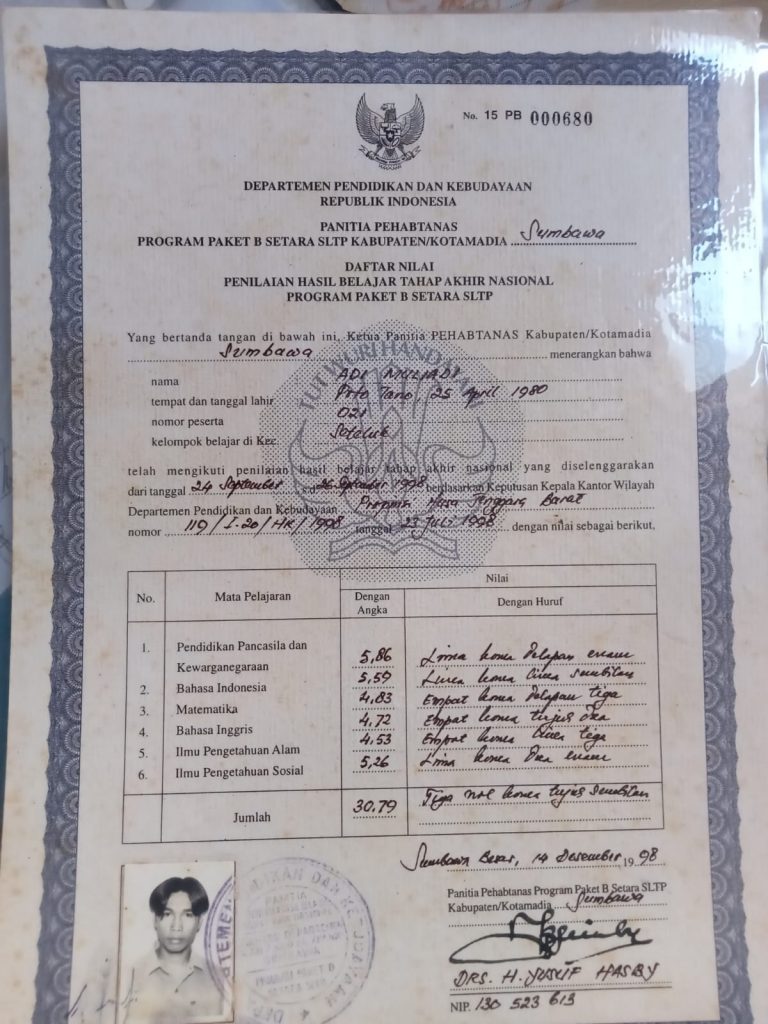 No. 15 PB 000680
DEPARTEMEN PENDIDIKAN DAN KEBUDAYAAN
REPUBLIK INDONESIA
PANITIA PEHABTANAS
PROGRAM PAKET B SETARA SLTP KABUPATEN/KOTAMADIA Sumbawa
DAFTAR NILAI
PENILAIAN HASIL BELAJAR TAHAP AKHIR NASIONAL
PROGRAM PAKET B SETARA SLTP
Yang bertanda tangan di bawah ini, Ketua Panitia PEHABTANAS Kabupaten/Kotamadia
Sumbawa menerangkan bahwa
TUT WURI HANDAYANI
nama ADI MULIADI
tempat dan tanggal lahir Poto Tano 25 April 1980
nomor peserta 021
kelompok belajar di Kec. Seteluk
telah mengikuti penilaian hasil belajar tahap akhir nasional yang diselenggarakan
dari tanggal 24 September s.d. 26 September 1998 berdasarkan Keputusan Kepala Kantor Wilayah
Departemen Pendidikan dan Kebudayaan Propinsi Nusa Tenggara Barat
nomor 119/I-20/HK/1998 tanggal 23 Juli 1998 dengan nilai sebagai berikut.
No. Mata Pelajaran Nilai
Dengan Angka Dengan Huruf
1. Pendidikan Pancasila dan
Kewarganegaraan 5,86 Lima koma delapan enam
2. Bahasa Indonesia 5,59 Lima koma lima sembilan
3. Matematika 4,83 Empat koma delapan tiga
4. Bahasa Inggris 4,72 Empat koma tujuh dua
5. Ilmu Pengetahuan Alam 4,53 Empat koma lima tiga
6. Ilmu Pengetahuan Sosial 5,26 Lima koma dua enam
Jumlah 30,79 Tiga nol koma tujuh sembilan
Sumbawa Besar, 14 Desember 1998
Panitia Pehabtanas Program Paket B Setara SLTP
Kabupaten/Kotamadia Sumbawa
DRS. H. YUSUF HASBY
NIP. 130 523 613